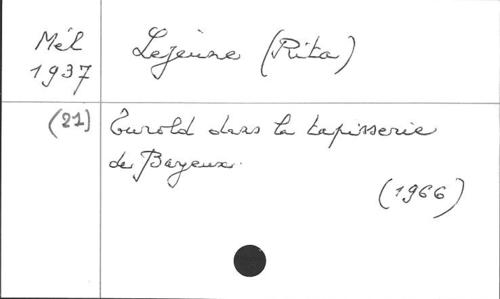 Mél
1937
Lejeune (Rita)
(21)
Turold dans la tapisserie
de Bayeux.
(1966)